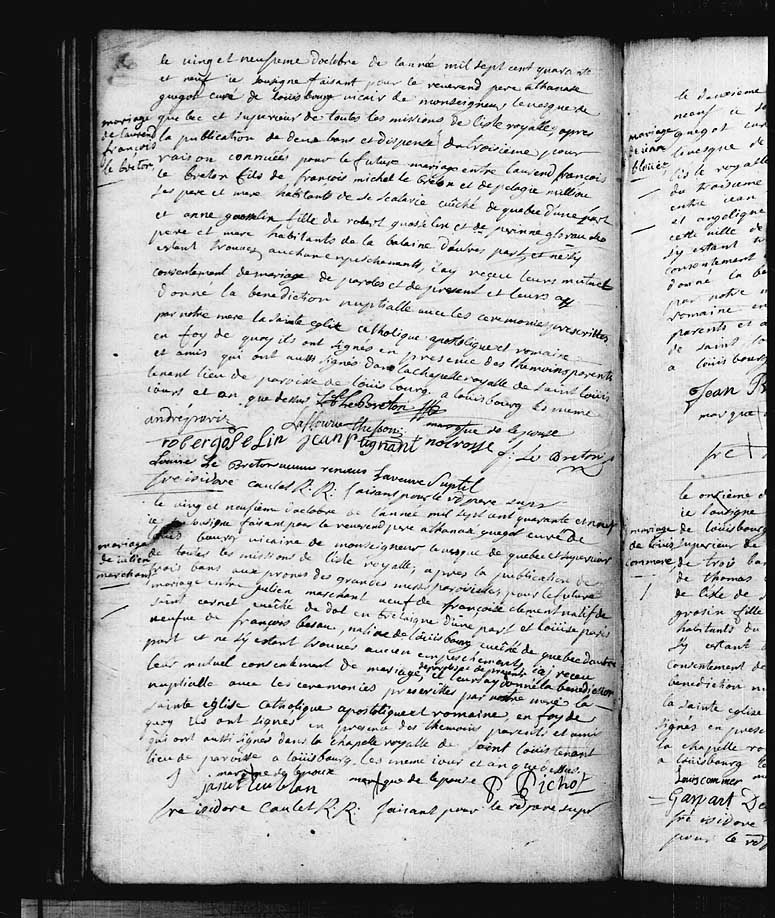 le vingt et neufieme doctobre de lannée mil sept cent quarante
et neuf ie sousigne faisant pour le reverend pere athanase
guegot curé de louisbourg vicair de monseigneur levesque de
quebec et superieur de toutes les missions de lisle royalle, apres
mariage
de laurend
françois
le breton
la publication de deux bans et dispense du troisieme pour
raison connuées pour le future mariage entre laurend françois
le breton fils de françois michel le breton et de pelagie million
ses pere et mere habitants de eveché de quebec d'une part
et anne gosselin fille de robert gosselin et de perinne
pere et mere habitants de la balaine d'autres part, et ne sy
estant trouvés aucun empeschements, iay reçeu leurs mutuel
consentement de mariage de paroles et de present et leurs ay
donné la benediction nuptialle avec les ceremonies prescrittes
par notre mere la sainte eglise catholique apostolique et romaine
en foy de quoy ils ont signés en presence des themoins parents
et amis qui ont aussi signés dans la chapelle royalle de saint louis
tenant lieu de paroisse de louisbourg, a louisbourg les meme
iours et an que dessus LF LeBreton
marque de lepouse
andré paris
rober goselin jean pugnant f: Le Breton
Louise Le Breton
fre isidore caulet R. R. faisant pour le rd pere supr
le vingt et neufieme doctobre de lannée mil sept cent quarante et neuf
ie sousigne faisant par le reverend pere athanase guegot curé de
louis bourg vicaire de monseigneur levesque de quebec et superieur
mariage
de iulien
marchant
de toutes les missions de lisle royalle, apres la publication de
trois bans aux prones des grandes messes paroisiales pour le future
mariage entre julien marchant neuf de françoise clement natif de
saint cernet eveché de dol en bretaigne d'une part et louise paris
neufue de françois besau, native de louisbourg eveché de quebec d'autre
part et ne sy estant trouvés aucun empeschements, iay reçeu
leur mutuel consentement de mariage, de paroles de present, et leurs ay donné la benediction
nuptialle avec les ceremonies prescrittes par notre mere la
sainte eglise catholique apostolique et romaine en foy de
quoy ils ont signés en presence des themoins parents et amis
qui ont aussi signés dans la chapelle royalle de saint louis tenant
lieu de paroisse a louisbourg les meme iour et an que dessus
marque de lepoux marque de lepouse P Pichot
fre isidore caulet R. R. faisant pour le rd pere supr
le deuxieme
neuf ie so
guegot cur
levesque de
mariage
de iean
lisle royalle
du troisieme
entre iean
et angelique
cette ville de
sy estant tr
consentement
donné la be
par notre m
romaine en
parents et a
de saint lo
a louisbourg
Jean B
marque
fre
le onzieme d
ie sousigne
mariage
de louis
commere
de louisbourg
superieur de
de trois ban
de thomas
de lisle de
grosin fille
habitants du
sy estant
consentement de
benediction nu
la sainte eglise
signés en prese
la chapelle ro
a louisbourg le
Louis commer
Gaspart De
fré issidore
pour le rd